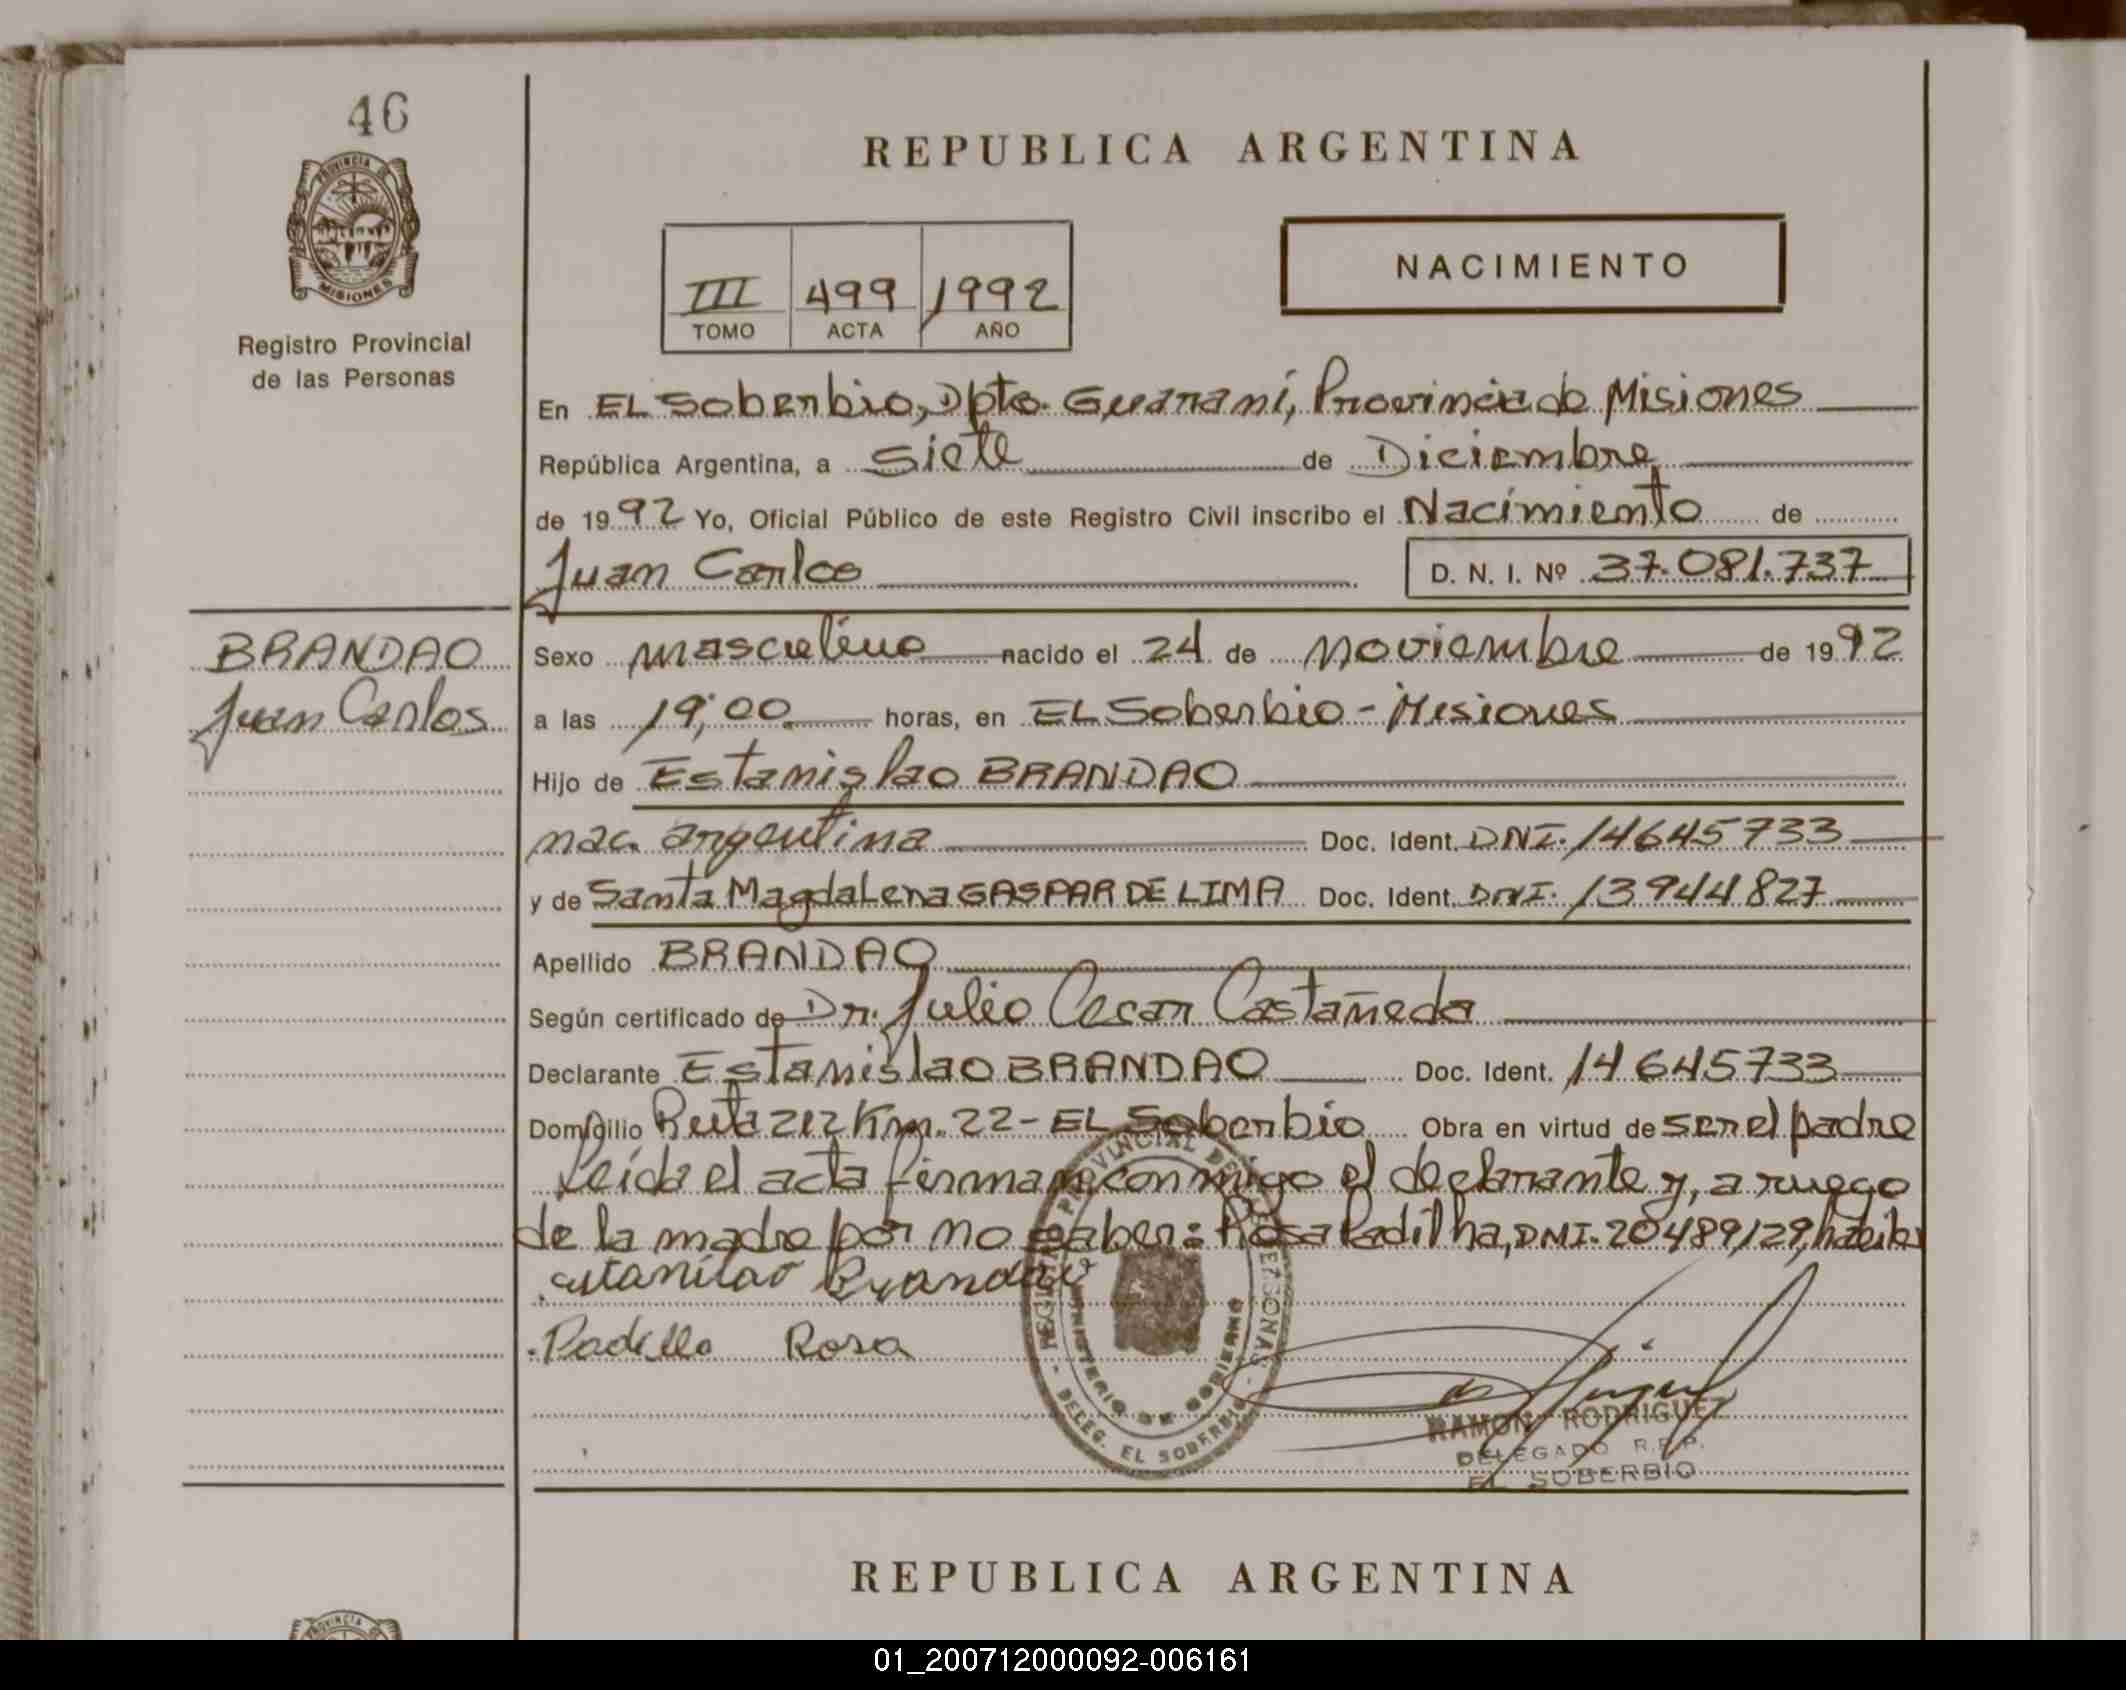 46
PROVINCIA DE
MISIONES
Registro Provincial
de las Personas
REPUBLICA ARGENTINA
III 499 1992
TOMO ACTA AÑO
NACIMIENTO
En EL Soberbio, Dpto. Guaraní, Provincia de Misiones
República Argentina, a siete de Diciembre
de 1992 Yo, Oficial Público de este Registro Civil inscribo el Nacimiento de
Juan Carlos
D. N. I. Nº 37.081.737
BRANDAO
Juan Carlos
Sexo masculino nacido el 24 de noviembre de 1992
a las 19,00 horas, en EL Soberbio - Misiones
Hijo de Estanislao BRANDAO
nac. argentina Doc. Ident. DNI. 14645733
y de Santa MagdaLena GASPAR DE LIMA Doc. Ident. DNI. 13944827
Apellido BRANDAO
Según certificado de Dr. Julio Cesar Castañeda
Declarante Estanislao BRANDAO Doc. Ident. 14645733
Domicilio Ruta 212 Km. 22 - EL Soberbio Obra en virtud de ser el padre
Leída el acta firman conmigo el declarante y, a ruego
de la madre por no saber: Rosa Padilha, DNI. 20489129, habib
estanilao Brandao
Padilla Rosa
REGISTRO PROVINCIAL DE LAS PERSONAS
MINISTERIO DE GOBIERNO
DELEG. EL SOBERBIO
RAMON RODRIGUEZ
DELEGADO R.P.P.
EL SOBERBIO
REPUBLICA ARGENTINA
PROVINCIA DE
01_200712000092-006161